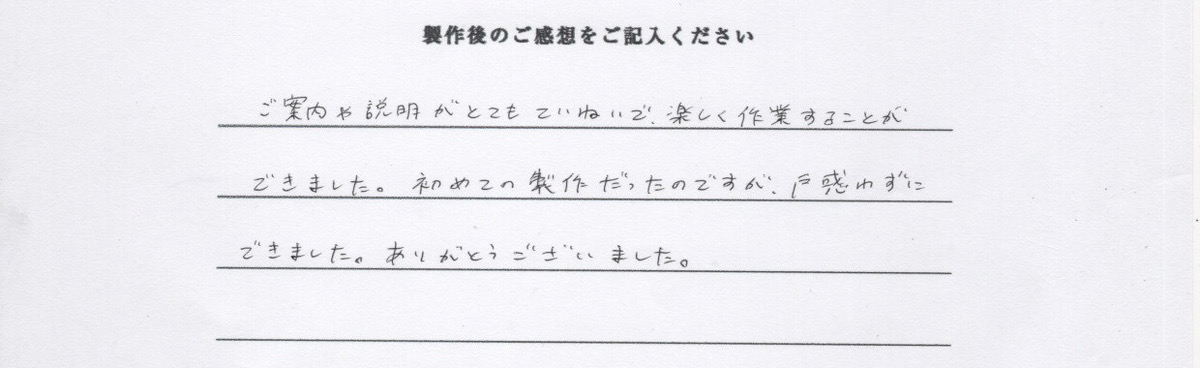 製作後のご感想をご記入ください
ご案内や説明がとてもていねいで、楽しく作業することが
できました。初めての製作だったのですが、戸惑わずに
できました。ありがとうございました。